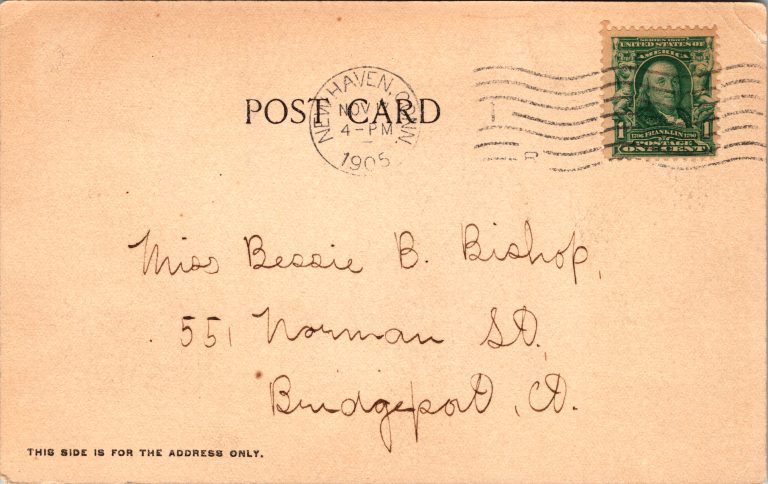 SERIES 1902
UNITED STATES OF
AMERICA
1 1706 FRANKLIN 1790 1
POSTAGE
ONE CENT
NEW HAVEN, CONN.
NOV
4-PM
1905
POST CARD
Miss Bessie B. Bishop,
551 Norman St.
Bridgeport, Ct.
THIS SIDE IS FOR THE ADDRESS ONLY.